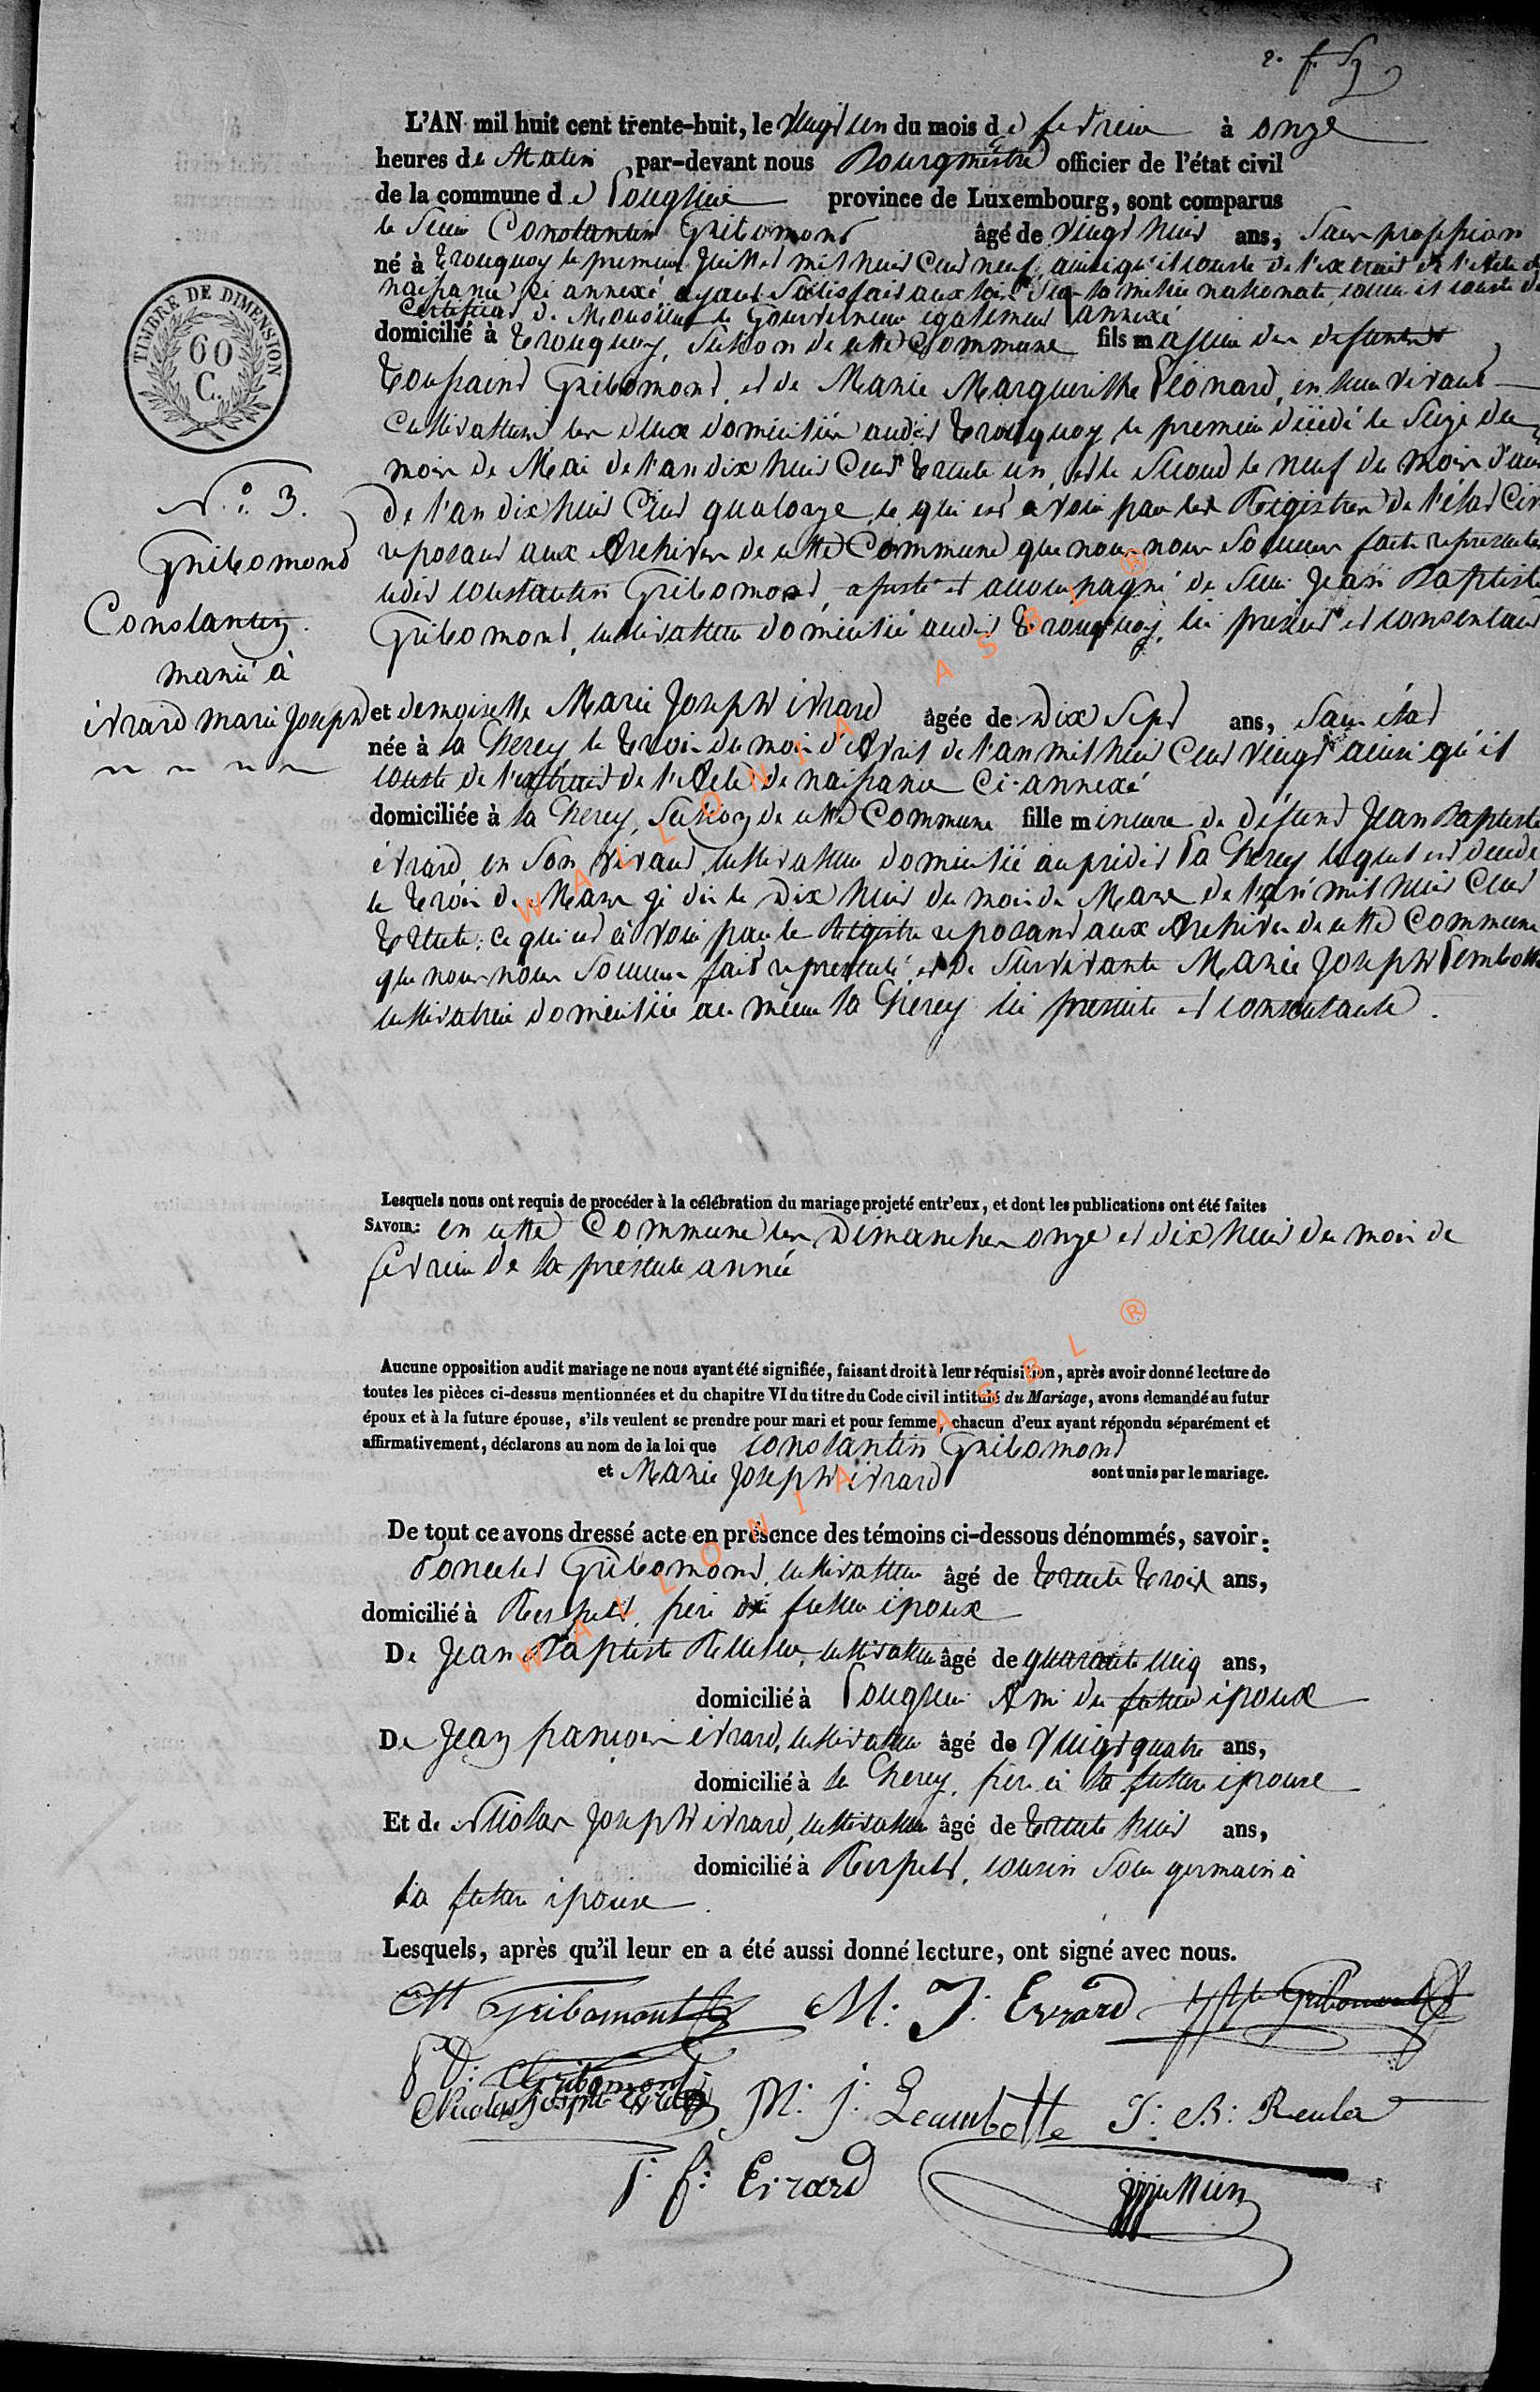 L'AN mil huit cent trente-huit, le vingt un du mois de fevrier à onze
heures du Matin par-devant nous Bourgmestre officier de l'état civil
de la commune de Longlier province de Luxembourg, sont comparus
le Sieur Constantin Gribomont âgé de vingt huit ans, Sans profession
né à Tronquoy le premier Juillet mil huit Cent neuf, ainsi qu'il conste de l'extrait de l'Acte de
naissance ci annexé, ayant Satisfait aux lois Sur la milice nationale, comme il conste du
Certificat de Monsieur le Gouverneur egalement annexé
domicilié à Tronquoy, Section de cette Commune fils majeur des defunts
TIMBRE DE DIMENSION
60
C.
Toussaint Gribomont, et de Marie Marguerithe Léonard, en leur vivant
Cultivateurs les deux domiciliés audit Tronquoy, le premier décédé le Seize du
mois de Mai de l'an dix huit Cent trente un, et le Second le neuf du mois d'
N.º 3.
de l'an dix huit Cent quatorze, ce qui est a voir par les Régistres de l'état Civ
Gribomont
reposant aux Archives de cette Commune que nous nous Sommes faits representer
Constantin
ledit constantin Gribomont, assisté et accompagné de Sieur Jean Baptiste
Gribomont, cultivateur domicilié audit Tronquoy, ici present et consentant
marié à
évrard marie Joseph
et demoiselle Marie Joseph évrard âgée de Dix Sept ans, Sans état
née à la Cherey le trois du mois d'Avril de l'an mil huit Cent vingt ainsi qu'il
conste de l'extrait de l'Acte de naissance Ci-annexé
domiciliée à la Cherey, Section de cette Commune fille mineure de défunt Jean Baptiste
évrard, en Son vivant, cultivateur domicilié au prédit la Cherey lequel est décédé
le trois de Mars je dis le Dix huit du mois de Mars de l'an mil huit Cent
trente: ce qui est à voir par le Régistre reposant aux Archives de cette Commune
que nous nous Sommes fait representé et de Survivante Marie Joseph Lembotte
cultivatrice domiciliée au même la Cherey ici presente et consentante.
Lesquels nous ont requis de procéder à la célébration du mariage projeté entr'eux, et dont les publications ont été faites
SAVOIR: en cette Commune les Dimanches onze et dix huit du mois de
fevrier de la présente année
Aucune opposition audit mariage ne nous ayant été signifiée, faisant droit à leur réquisition, après avoir donné lecture de
toutes les pièces ci-dessus mentionnées et du chapitre VI du titre du Code civil intitulé du Mariage, avons demandé au futur
époux et à la future épouse, s'ils veulent se prendre pour mari et pour femme, chacun d'eux ayant répondu séparément et
affirmativement, déclarons au nom de la loi que constantin Gribomont
et Marie Joseph évrard sont unis par le mariage.
De tout ce avons dressé acte en présence des témoins ci-dessous dénommés, savoir:
Gribomont, cultivateur âgé de trente trois ans,
domicilié à Respelt, frère du futur époux
De Jean Baptiste cultivateur âgé de quarante cinq ans,
domicilié à Longlier Ami du futur époux
De Jean françois évrard, cultivateur âgé de vingt quatre ans,
domicilié à la Cherey, frère à la future épouse
Et de Nicolas Joseph évrard, cultivateur âgé de trente huit ans,
domicilié à Respelt, cousin Sous germain à
la future épouse.
Lesquels, après qu'il leur en a été aussi donné lecture, ont signé avec nous.
Gribomont M: J: Evrard Gribomont
D: Gribomont
Nicolas joseph evrard M: J: Leambotte J: B: Reuler
J: f: Evrard
WALLONIA ASBL ®
WALLONIA ASBL ®